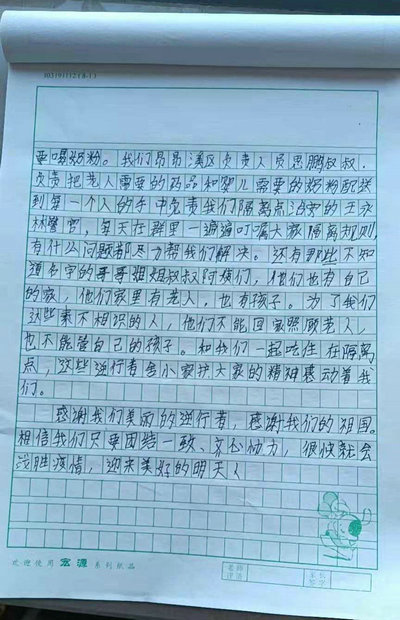 要喝奶粉。我们昂昂溪区负责人员思鹏叔叔,
负责把老人需要的药品和婴儿需要的奶粉配送
到每一个人的手中负责我们隔离点治安的王永
林警官,每天在群里一遍遍叮嘱大家隔离规则,
有什么问题都尽力帮我们解决。还有那些不知
道名字的哥哥姐姐叔叔阿姨们,他们也有自己
的家,他们家里有老人,也有孩子。为了我们
这些素不相识的人,他们不能回家照顾老人,
也不能管自己的孩子。和我们一起吃住在隔离
点,这些逆行者舍小家护大家的精神感动着我
们。
感谢我们美丽的逆行者,感谢我们的祖国。
相信我们只要团结一致、齐心协力,很快就会
战胜疫情,迎来美好的明天!
欢迎使用 宏源 系列纸品
老师
评语
家长
签字